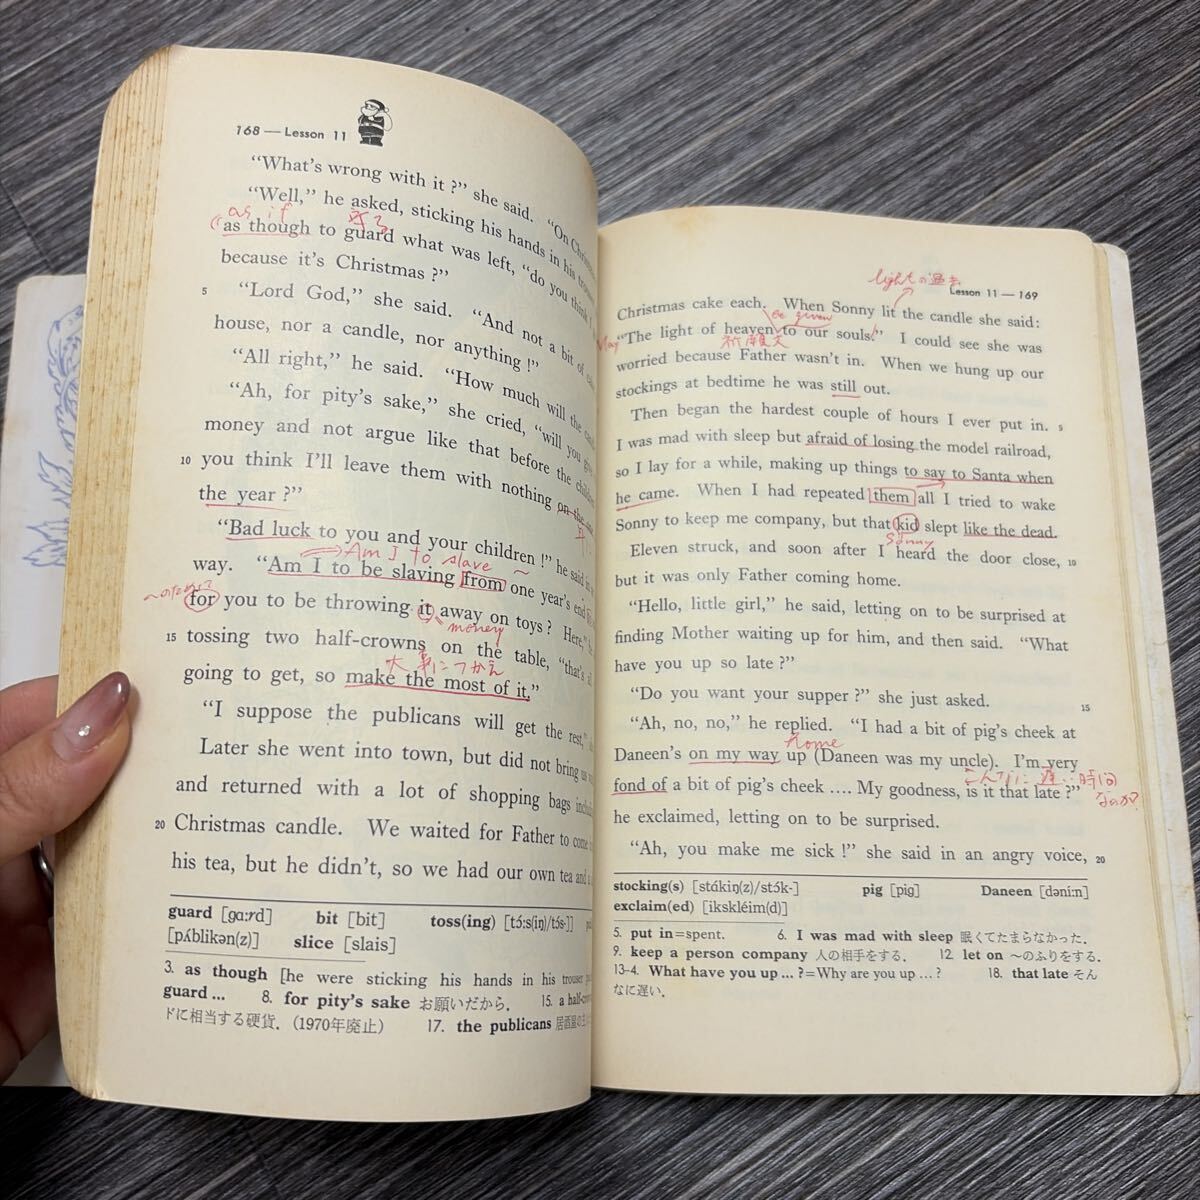 168 — Lesson 11
“What's wrong with it ?” she said. “On
“Well,” he asked, sticking his hands in his
as if
as though to guard what was left, “do you think
because it's Christmas ?”
5 “Lord God,” she said. “And not a bit of
house, nor a candle, nor anything !”
“All right,” he said. “How much will the
“Ah, for pity's sake,” she cried, “will you
money and not argue like that before the
10 you think I'll leave them with nothing on the
the year ?”
“Bad luck to you and your children !” he said
Am I to slave ~
way. “Am I to be slaving from one year's end
for you to be throwing it away on toys ? Here,”
money
15 tossing two half-crowns on the table, “that's
going to get, so make the most of it.”
“I suppose the publicans will get the rest,”
Later she went into town, but did not bring us
and returned with a lot of shopping bags
20 Christmas candle. We waited for Father to come
his tea, but he didn't, so we had our own tea and
guard [gɑːrd] bit [bit] toss(ing) [tɔ́ːs(iŋ)/tɔ́s-]
[pʌ́blikən(z)] slice [slais]
3. as though [he were sticking his hands in his trouser
guard ... 8. for pity's sake お願いだから. 15. a
ドに相当する硬貨. (1970年廃止) 17. the publicans
lightの過去
Lesson 11 — 169
Christmas cake each. When Sonny lit the candle she said:
be given
“The light of heaven to our souls.” I could see she was
祈願文
worried because Father wasn't in. When we hung up our
stockings at bedtime he was still out.
Then began the hardest couple of hours I ever put in. 5
I was mad with sleep but afraid of losing the model railroad,
so I lay for a while, making up things to say to Santa when
he came. When I had repeated them all I tried to wake
Sonny to keep me company, but that kid slept like the dead.
Sonny
Eleven struck, and soon after I heard the door close, 10
but it was only Father coming home.
“Hello, little girl,” he said, letting on to be surprised at
finding Mother waiting up for him, and then said. “What
have you up so late ?”
“Do you want your supper ?” she just asked. 15
“Ah, no, no,” he replied. “I had a bit of pig's cheek at
home
Daneen's on my way up (Daneen was my uncle). I'm very
こんなに遅い時間なのか?
fond of a bit of pig's cheek .... My goodness, is it that late ?”
he exclaimed, letting on to be surprised.
“Ah, you make me sick !” she said in an angry voice, 20
stocking(s) [stɑ́kiŋ(z)/stɔ́k-] pig [pig] Daneen [dəníːn]
exclaim(ed) [ikskléim(d)]
5. put in=spent. 6. I was mad with sleep 眠くてたまらなかった.
9. keep a person company 人の相手をする. 12. let on 〜のふりをする.
13-4. What have you up ... ?=Why are you up ... ? 18. that late そん
なに遅い.